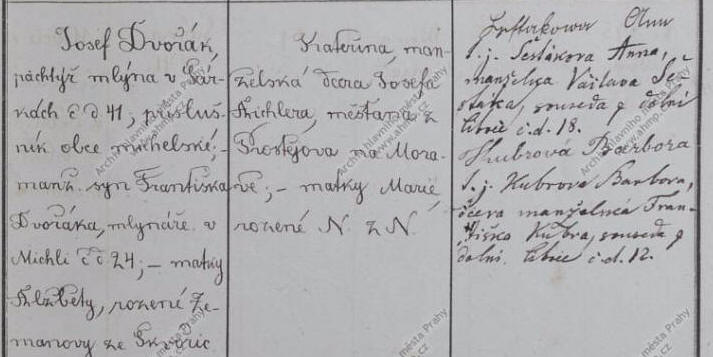 Josef Dvořák,
pachtýř mlýna v
kách č d 41; přísluš-
ník obce michelské; -
manž. syn Františka
Dvořáka, mlynáře v
Michli č d 24; - matky
Alžběty, rozené Ze-
manovy ze
Kateřina, man-
želská dcera Josefa
městana z
Prostějova na Mora-
vě; - matky Marie
rozené N. z N.
Ann
t. j. Šestákova Anna,
manželka Václava Še-
stáka, souseda z dolní
č. d. 18.
Kubrová Barbora
t. j. Kubrova Barbora,
dcera manželská Fran-
tiška Kubra, souseda z
dolní č. d. 12.
Archiv hlavního města Prahy
www.ahmp.cz